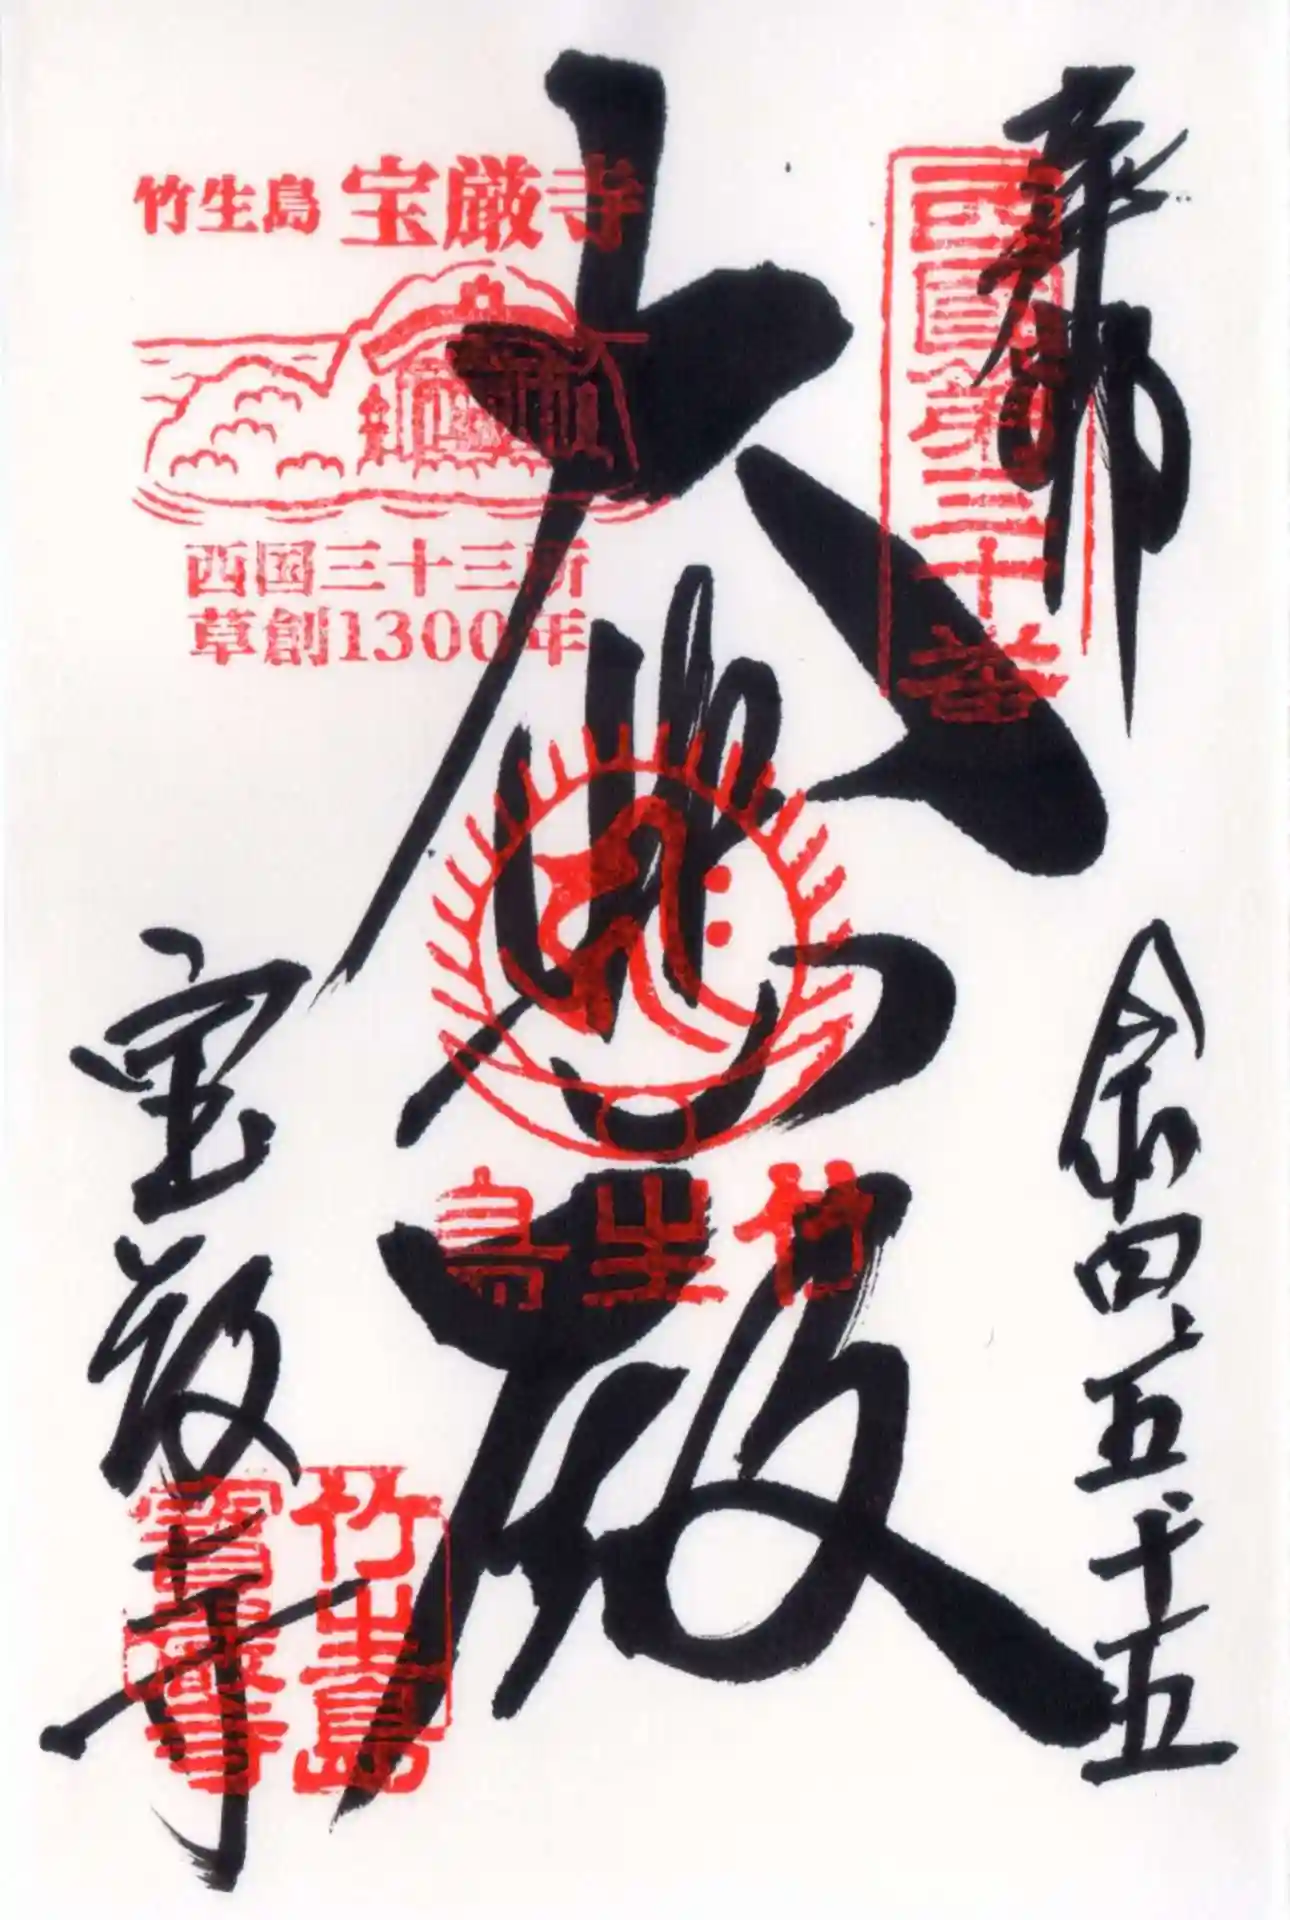 奉拝
西国第三十番
令和四、五、十五
大悲殿
竹生島
竹生島 宝厳寺
西国三十三所
草創1300年
宝厳寺
竹生島
寳厳寺